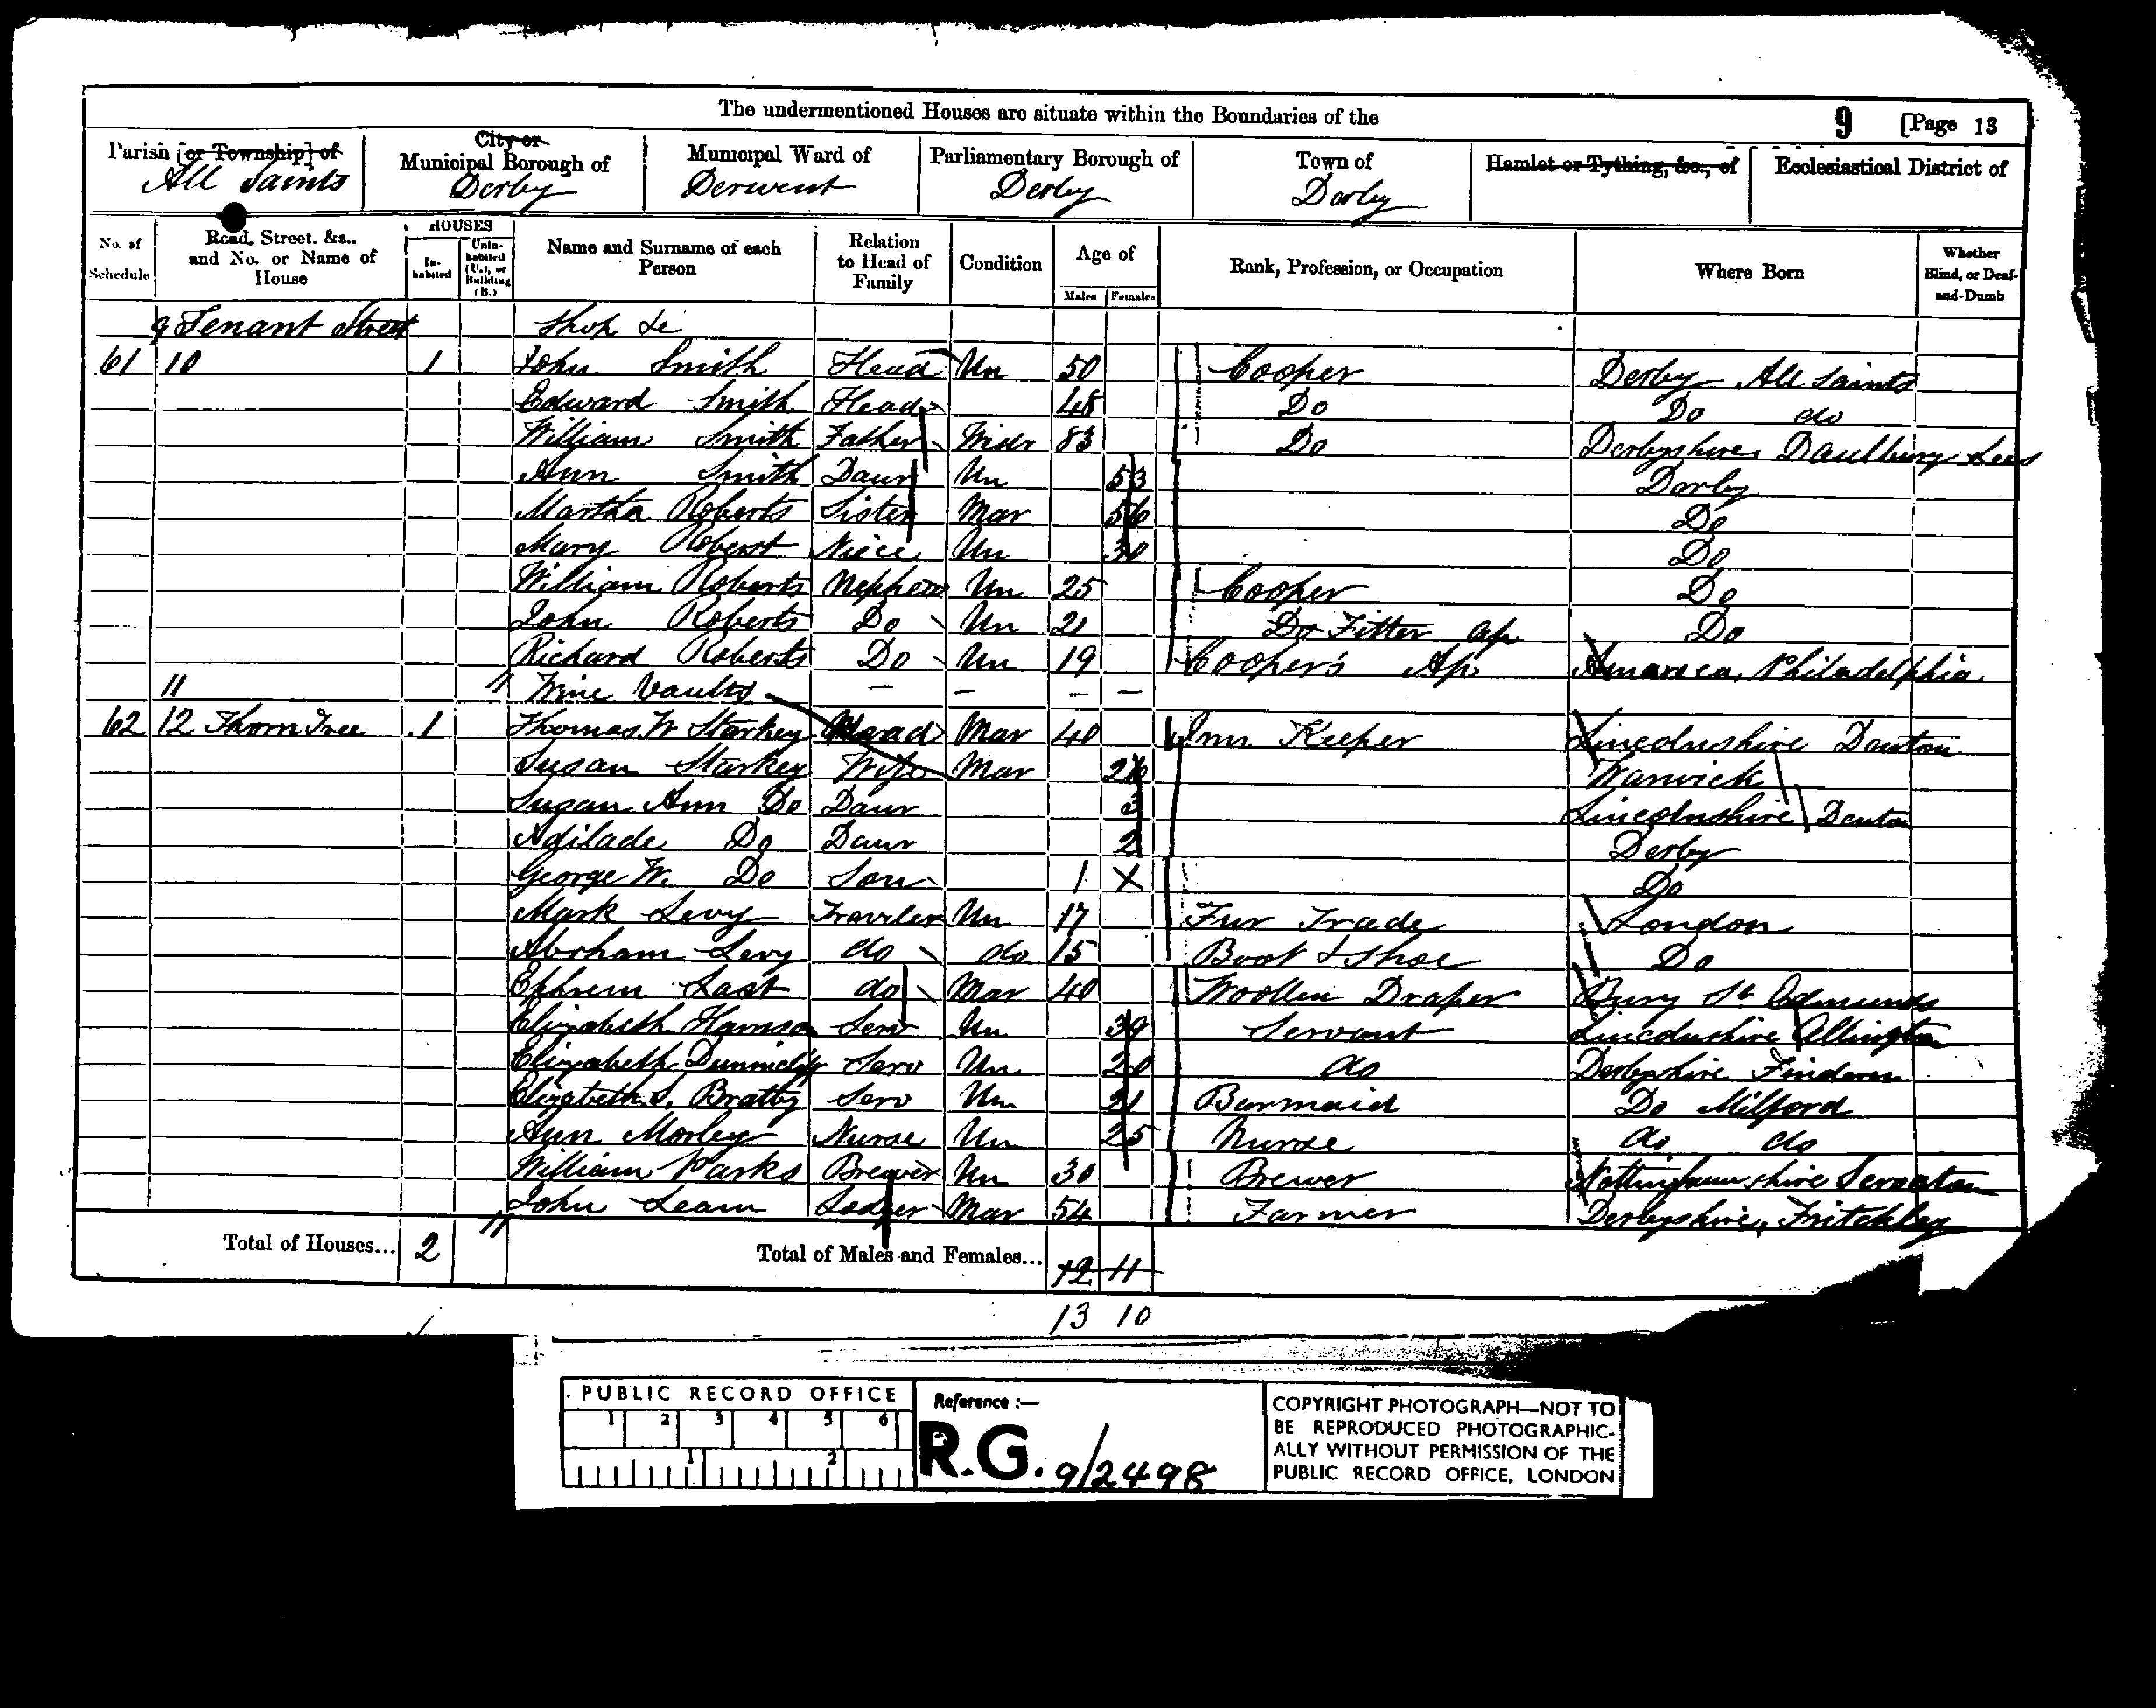 The undermentioned Houses are situate within the Boundaries of the 9 [Page 13
Parish [or Township] of All Saints
City or Municipal Borough of Derby
Municipal Ward of Derwent
Parliamentary Borough of Derby
Town of Derby
Hamlet or Tything, &c., of
Ecclesiastical District of
No. of Schedule
Road, Street, &c., and No. or Name of House
HOUSES
Inhabited
Uninhabited (U.), or Building (B.)
Name and Surname of each Person
Relation to Head of Family
Condition
Age of
Males Females
Rank, Profession, or Occupation
Where Born
Whether Blind, or Deaf-and-Dumb
9 Tenant Street Shop &c
61 10 1 John Smith Head Un 50 Cooper Derby All Saints
Edward Smith Head 48 Do Do do
William Smith Father Widr 83 Do Derbyshire, Daulbury Lees
Ann Smith Daur Un 53 Derby
Martha Roberts Sister Mar 56 Do
Mary Robert Niece Un 30 Do
William Roberts Nephew Un 25 Cooper Do
John Roberts Do Un 21 Do Fitter Ap Do
Richard Roberts Do Un 19 Cooper's Ap. Philadelphia
11 11 Wine Vaults — — — —
62 12 Thorn Tree 1 Thomas W Starkey Head Mar 40 Inn Keeper Lincolnshire Denton
Susan Starkey Wife Mar 26 Warwick
Susan Ann Do Daur 3 Lincolnshire Denton
Adilade Do Daur 2 Derby
George W. Do Son 1 X Do
Mark Levy Traveler Un 17 Fur Trade London
Abrham Levy do do 15 Boot & Shoe Do
Ephrem Last do Mar 40 Woollen Draper Bury St Edmunds
Elizabeth Serv Un 39 Servant Lincolnshire Allington
Elizabeth Serv Un 20 do Derbyshire Findern
Elizabeth S. Bratby Serv Un 21 Barmaid Do Milford
Ann Morley Nurse Un 25 Nurse do do
William Parks Brewer Un 30 Brewer Nottinghamshire
John Leam Lodger Mar 54 Farmer Derbyshire, Fritchley
Total of Houses... 2 11 Total of Males and Females... 12 11
13 10
PUBLIC RECORD OFFICE
1 2 3 4 5 6
1 2
Reference :—
R.G. 9/2498
COPYRIGHT PHOTOGRAPH—NOT TO
BE REPRODUCED PHOTOGRAPHIC-
ALLY WITHOUT PERMISSION OF THE
PUBLIC RECORD OFFICE, LONDON